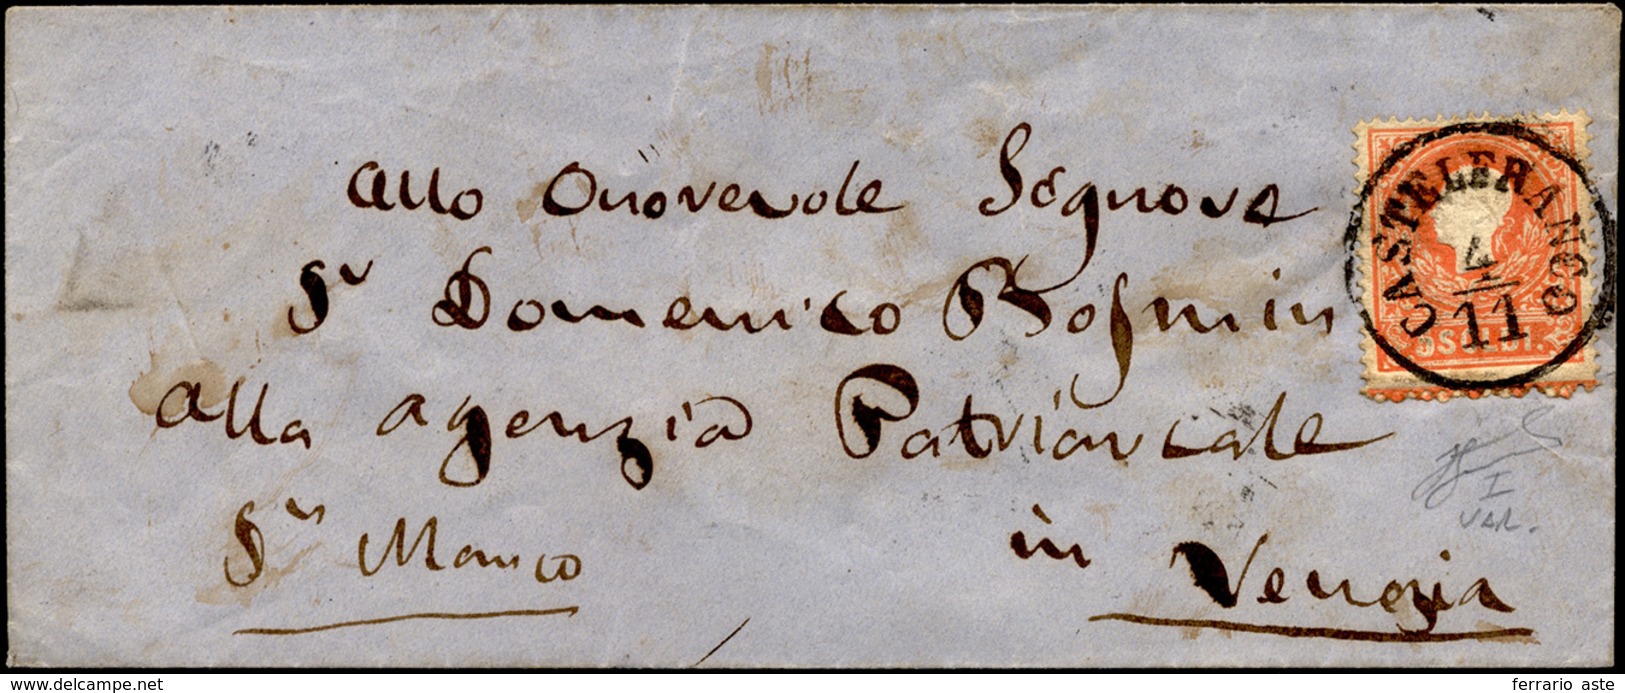 Allo Onorevole Segnore
Sr Domenico Bosmin
alla agenzia Patriarcale
Sn Marco
in
Venezia
CASTELFRANCO
4
11
5 SOLDI.
I
VAR.
delcampe.net
ferrario aste